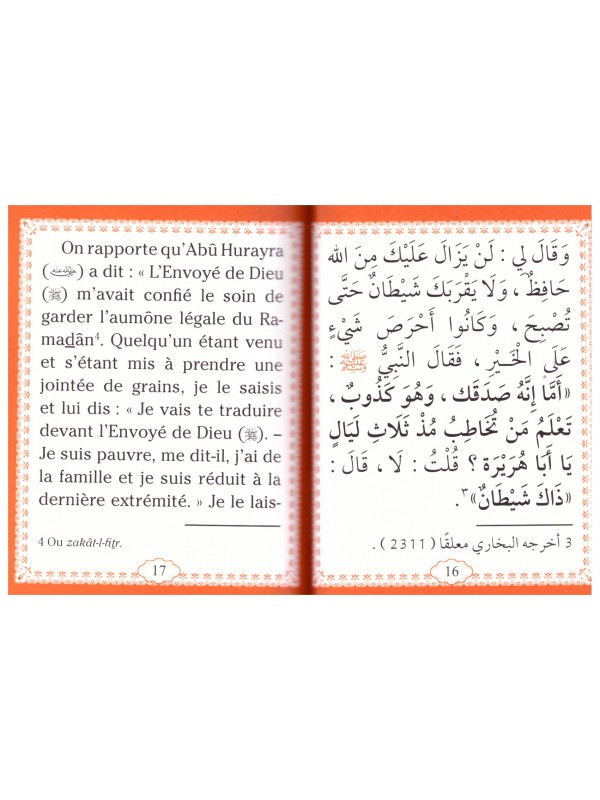 On rapporte qu'Abû Hurayra
(رضي الله عنه) a dit : « L'Envoyé de Dieu
(ﷺ) m'avait confié le soin de
garder l'aumône légale du Ra-
maḏân⁴. Quelqu'un étant venu
et s'étant mis à prendre une
jointée de grains, je le saisis
et lui dis : « Je vais te traduire
devant l'Envoyé de Dieu (ﷺ). –
Je suis pauvre, me dit-il, j'ai de
la famille et je suis réduit à la
dernière extrémité. » Je le lais-
4 Ou zakât-l-fiṯr.
17
وَقَالَ لِي : لَنْ يَزَالَ عَلَيْكَ مِنَ اللهِ
حَافِظٌ ، وَلَا يَقْرَبَكَ شَيْطَانٌ حَتَّى
تُصْبِحَ ، وَكَانُوا أَحْرَصَ شَيْءٍ
عَلَى الْخَيْرِ ، فَقَالَ النَّبِيُّ ﷺ :
«أَمَّا إِنَّهُ صَدَقَك ، وَهُوَ كَذُوبٌ ،
تَعْلَمُ مَنْ تُخَاطِبُ مُذْ ثَلَاثِ لَيَالٍ
يَا أَبَا هُرَيْرَة ؟ قُلْتُ : لَا ، قَالَ :
«ذَاكَ شَيْطَانٌ»٣.
3 أخرجه البخاري معلقًا ( 2311 ) .
16